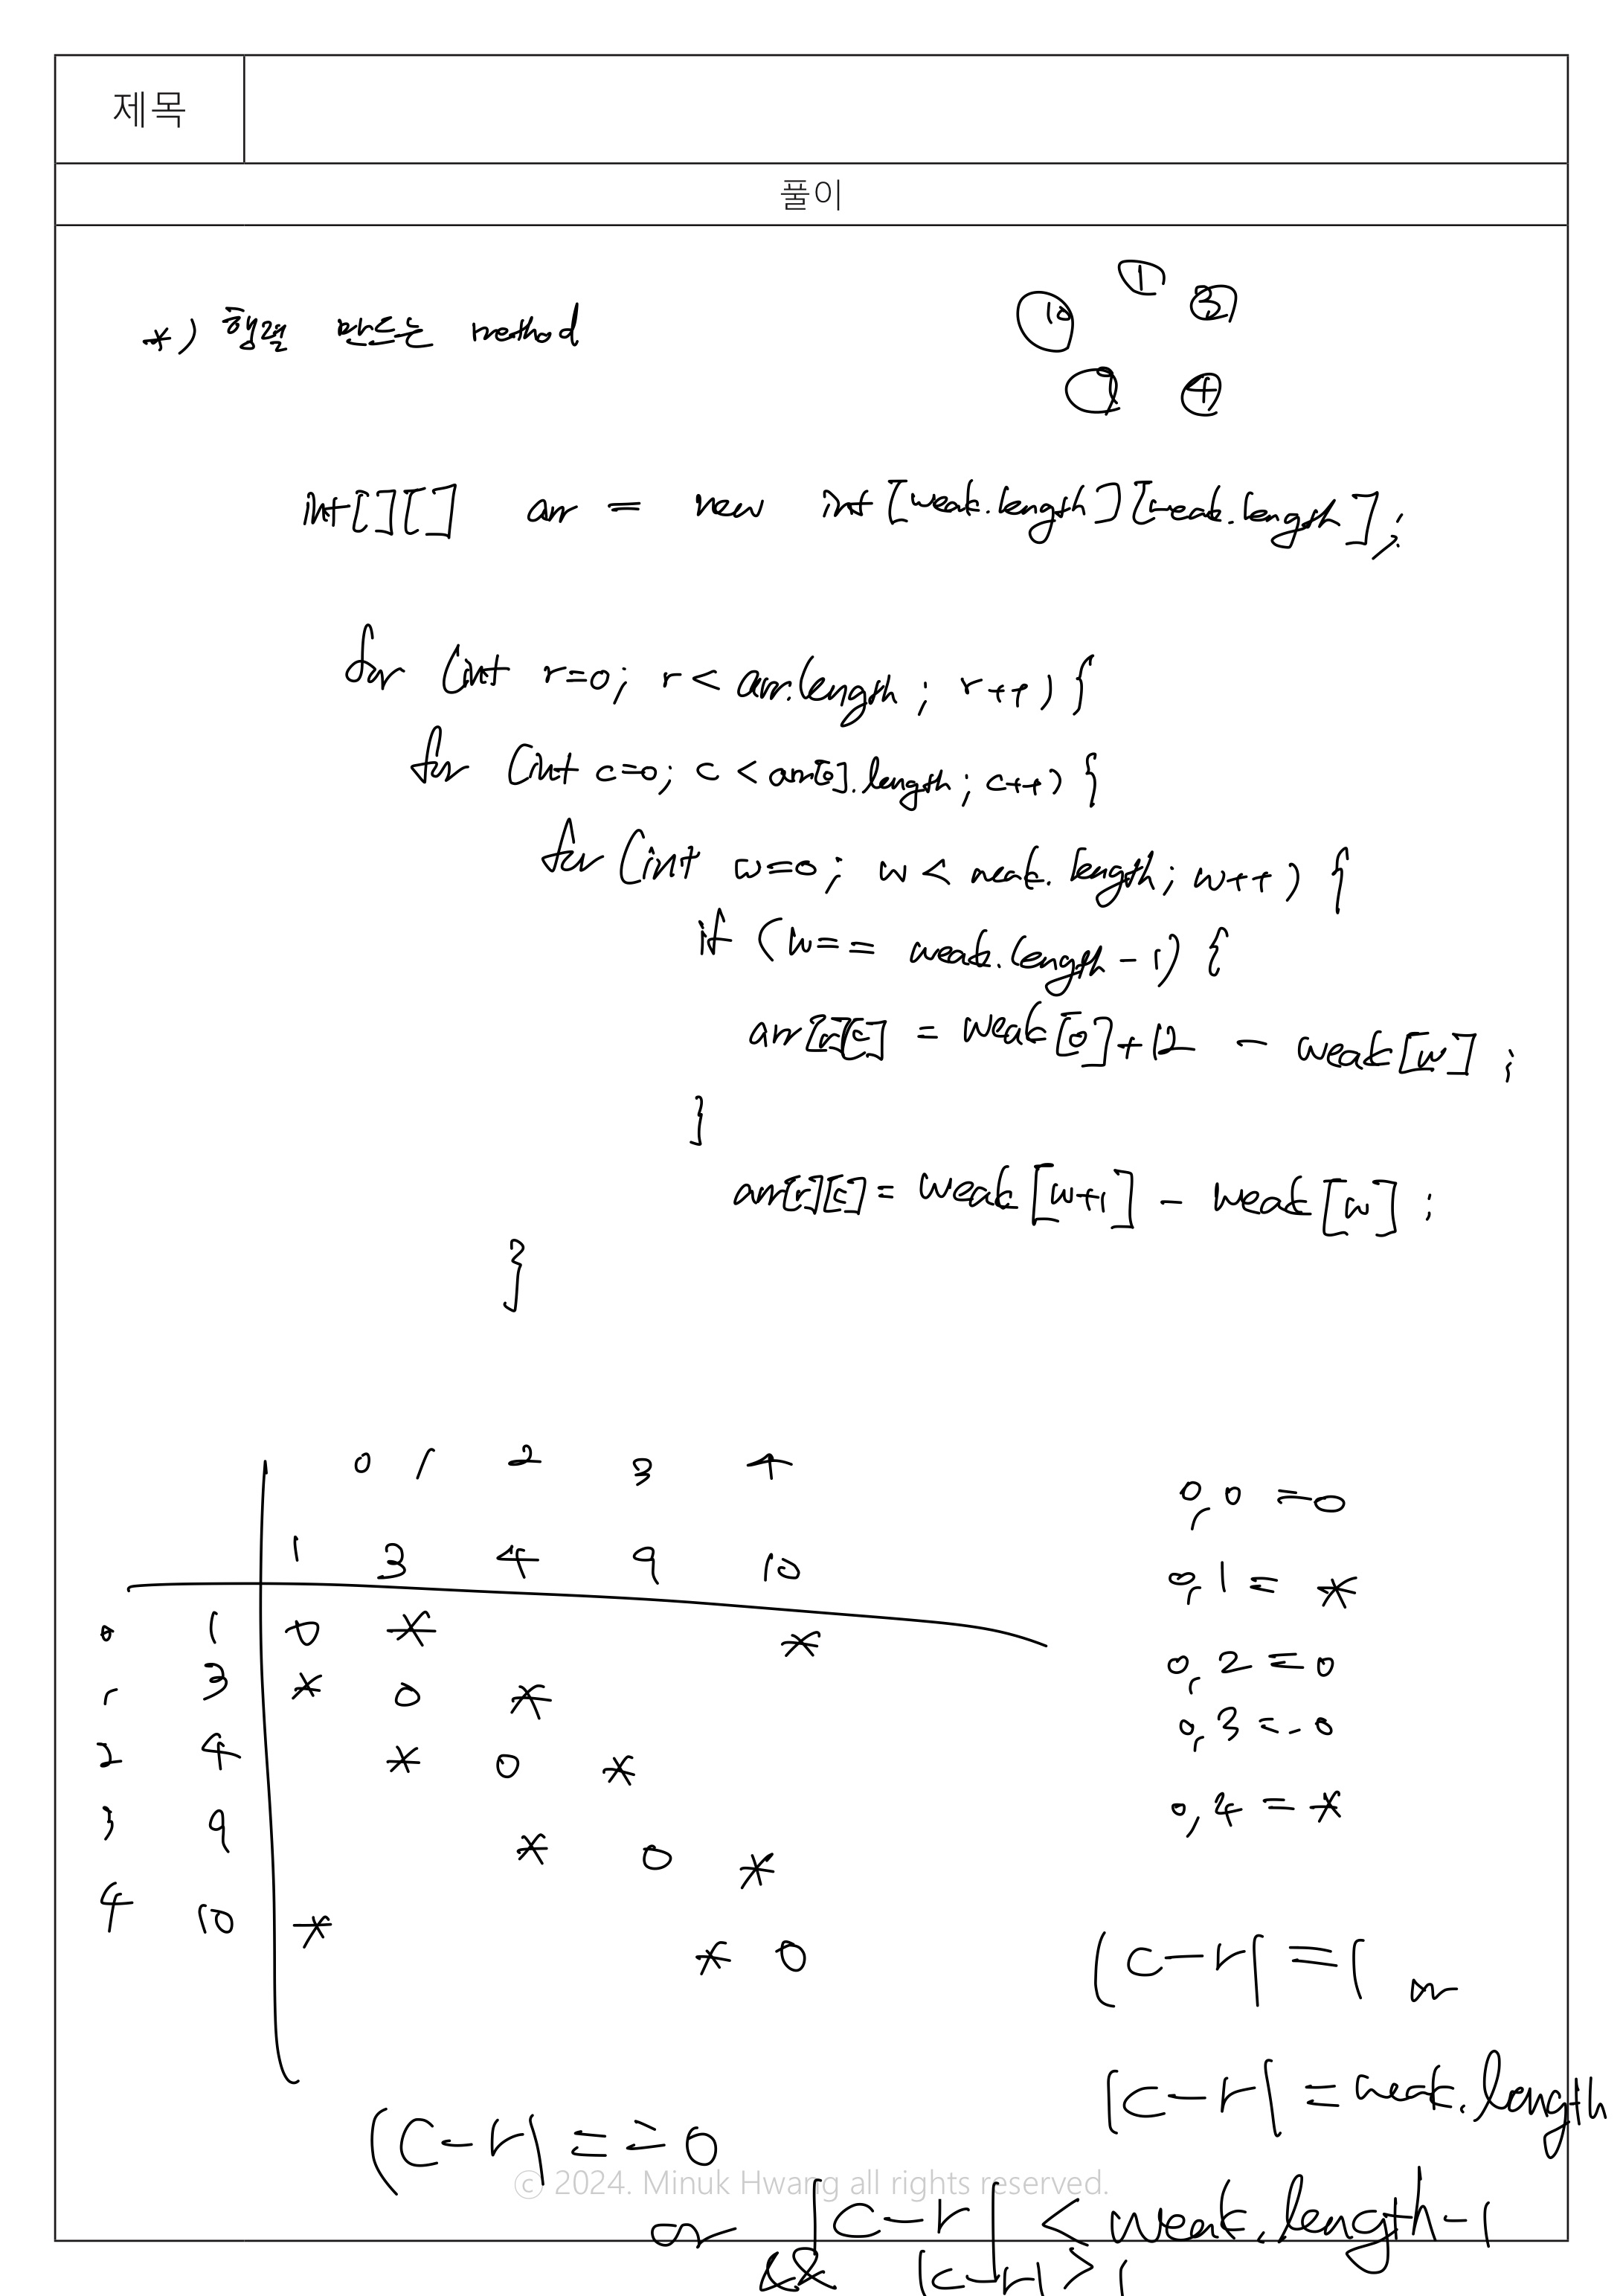 제목
풀이
*) 행렬 만드는 method
1
10 3
9 4
int[][] arr = new int[weak.length][weak.length];
for (int r=0; r < arr.length; r++) {
for (int c=0; c < arr[0].length; c++) {
for (int w=0; w < weak.length; w++) {
if (w== weak.length-1) {
arr[r][c] = weak[0]+12 - weak[w];
}
arr[r][c] = weak[w+1] - weak[w];
}
0 1 2 3 4
1 3 4 9 10
0 1 0 * *
1 3 * 0 *
2 4 * 0 *
3 9 * 0 *
4 10 * * 0
0,0 = 0
0,1 = *
0,2 = 0
0,3 = 0
0,4 = *
|c-r| = 1 or
|c-r| = weak.length
|c-r| == 0
© 2024. Minuk Hwang all rights reserved.
or |c-r| < weak.length-1
&& |c-r| > 1